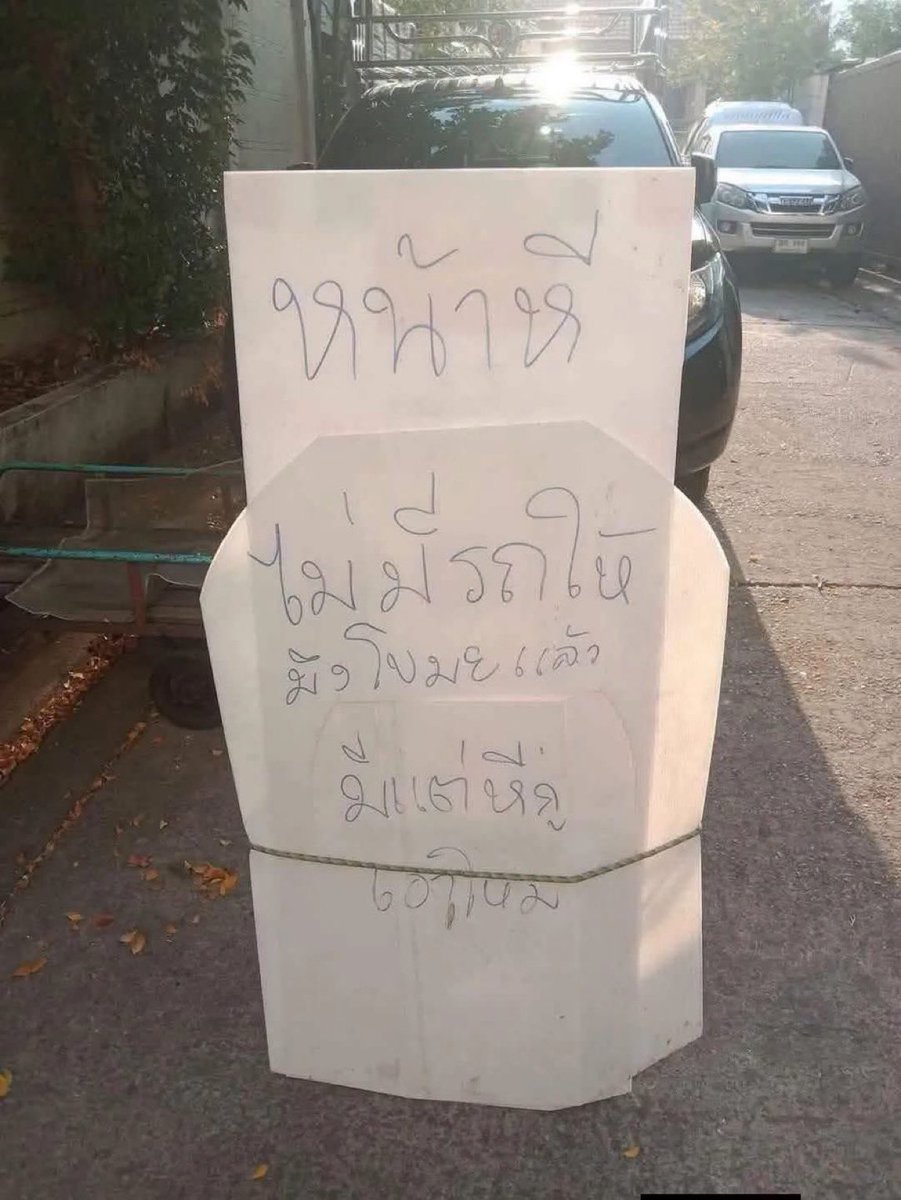 หน้าหี
ไม่มีรถให้
มึงโขมยแล้ว
มีแต่หีกู
เอาไหม